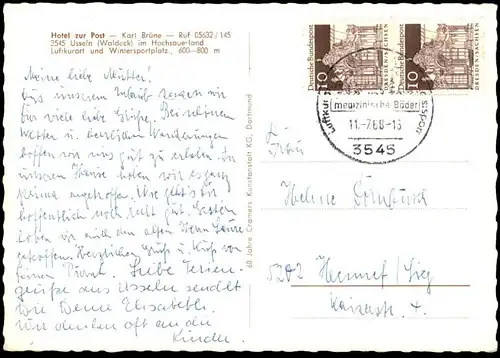 Hotel zur Post — Karl Brüne — Ruf 05632/145
3545 Usseln (Waldeck) im Hochsauerland
Luftkurort und Wintersportplatz, 600—800 m
Meine liebe Mutter!
Aus unserem Urlaub senden wir
Dir viele liebe Grüße. Bei schönem
Wetter u. herrlichen Wanderungen
hoffen wir uns gut zu erholen. In
unserem Hause haben wir es ganz
prima angetroffen. Ihr geht's Dir
hoffentlich noch recht gut. Gestern
haben wir auch den alten Herrn
getroffen. Herzlichen Gruß u. Kuß von
Deinen Liebe Ferien-
grüße aus Usseln sendet
Dir Deine Elisabeth.
Wir denken oft an die
Kinder.
60 Jahre Cramers Kunstanstalt KG, Dortmund
Deutsche Bundespost
10
DRESDEN-SACHSEN
Deutsche Bundespost
10
DRESDEN-SACHSEN
medizinische Bäder
11.-7.68-13
3545
Frau
Helene
5202 Hennef/Sieg
Kaiserstr. 4